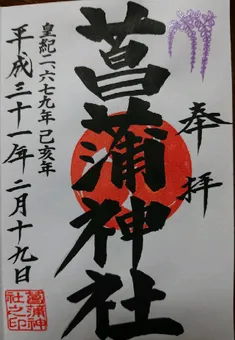 奉拝
菖蒲神社
皇紀二六七九年己亥年
平成三十一年二月十九日
菖蒲神
社之印